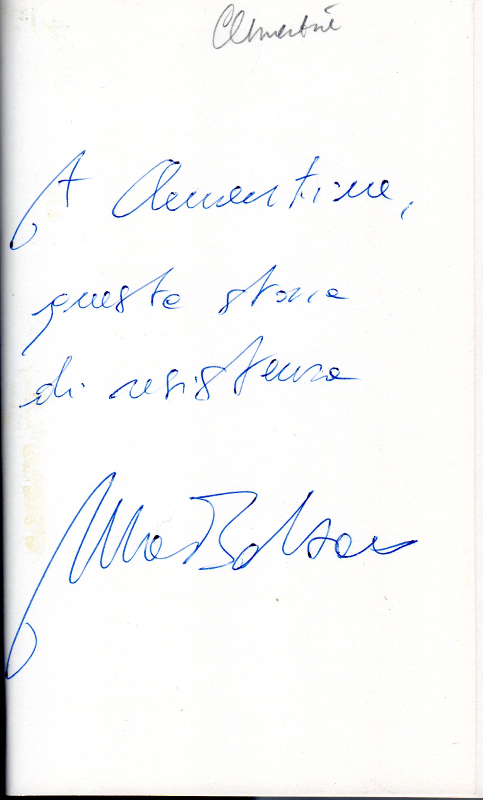 Clementine
A Clementine,
queste storie
di resistenza